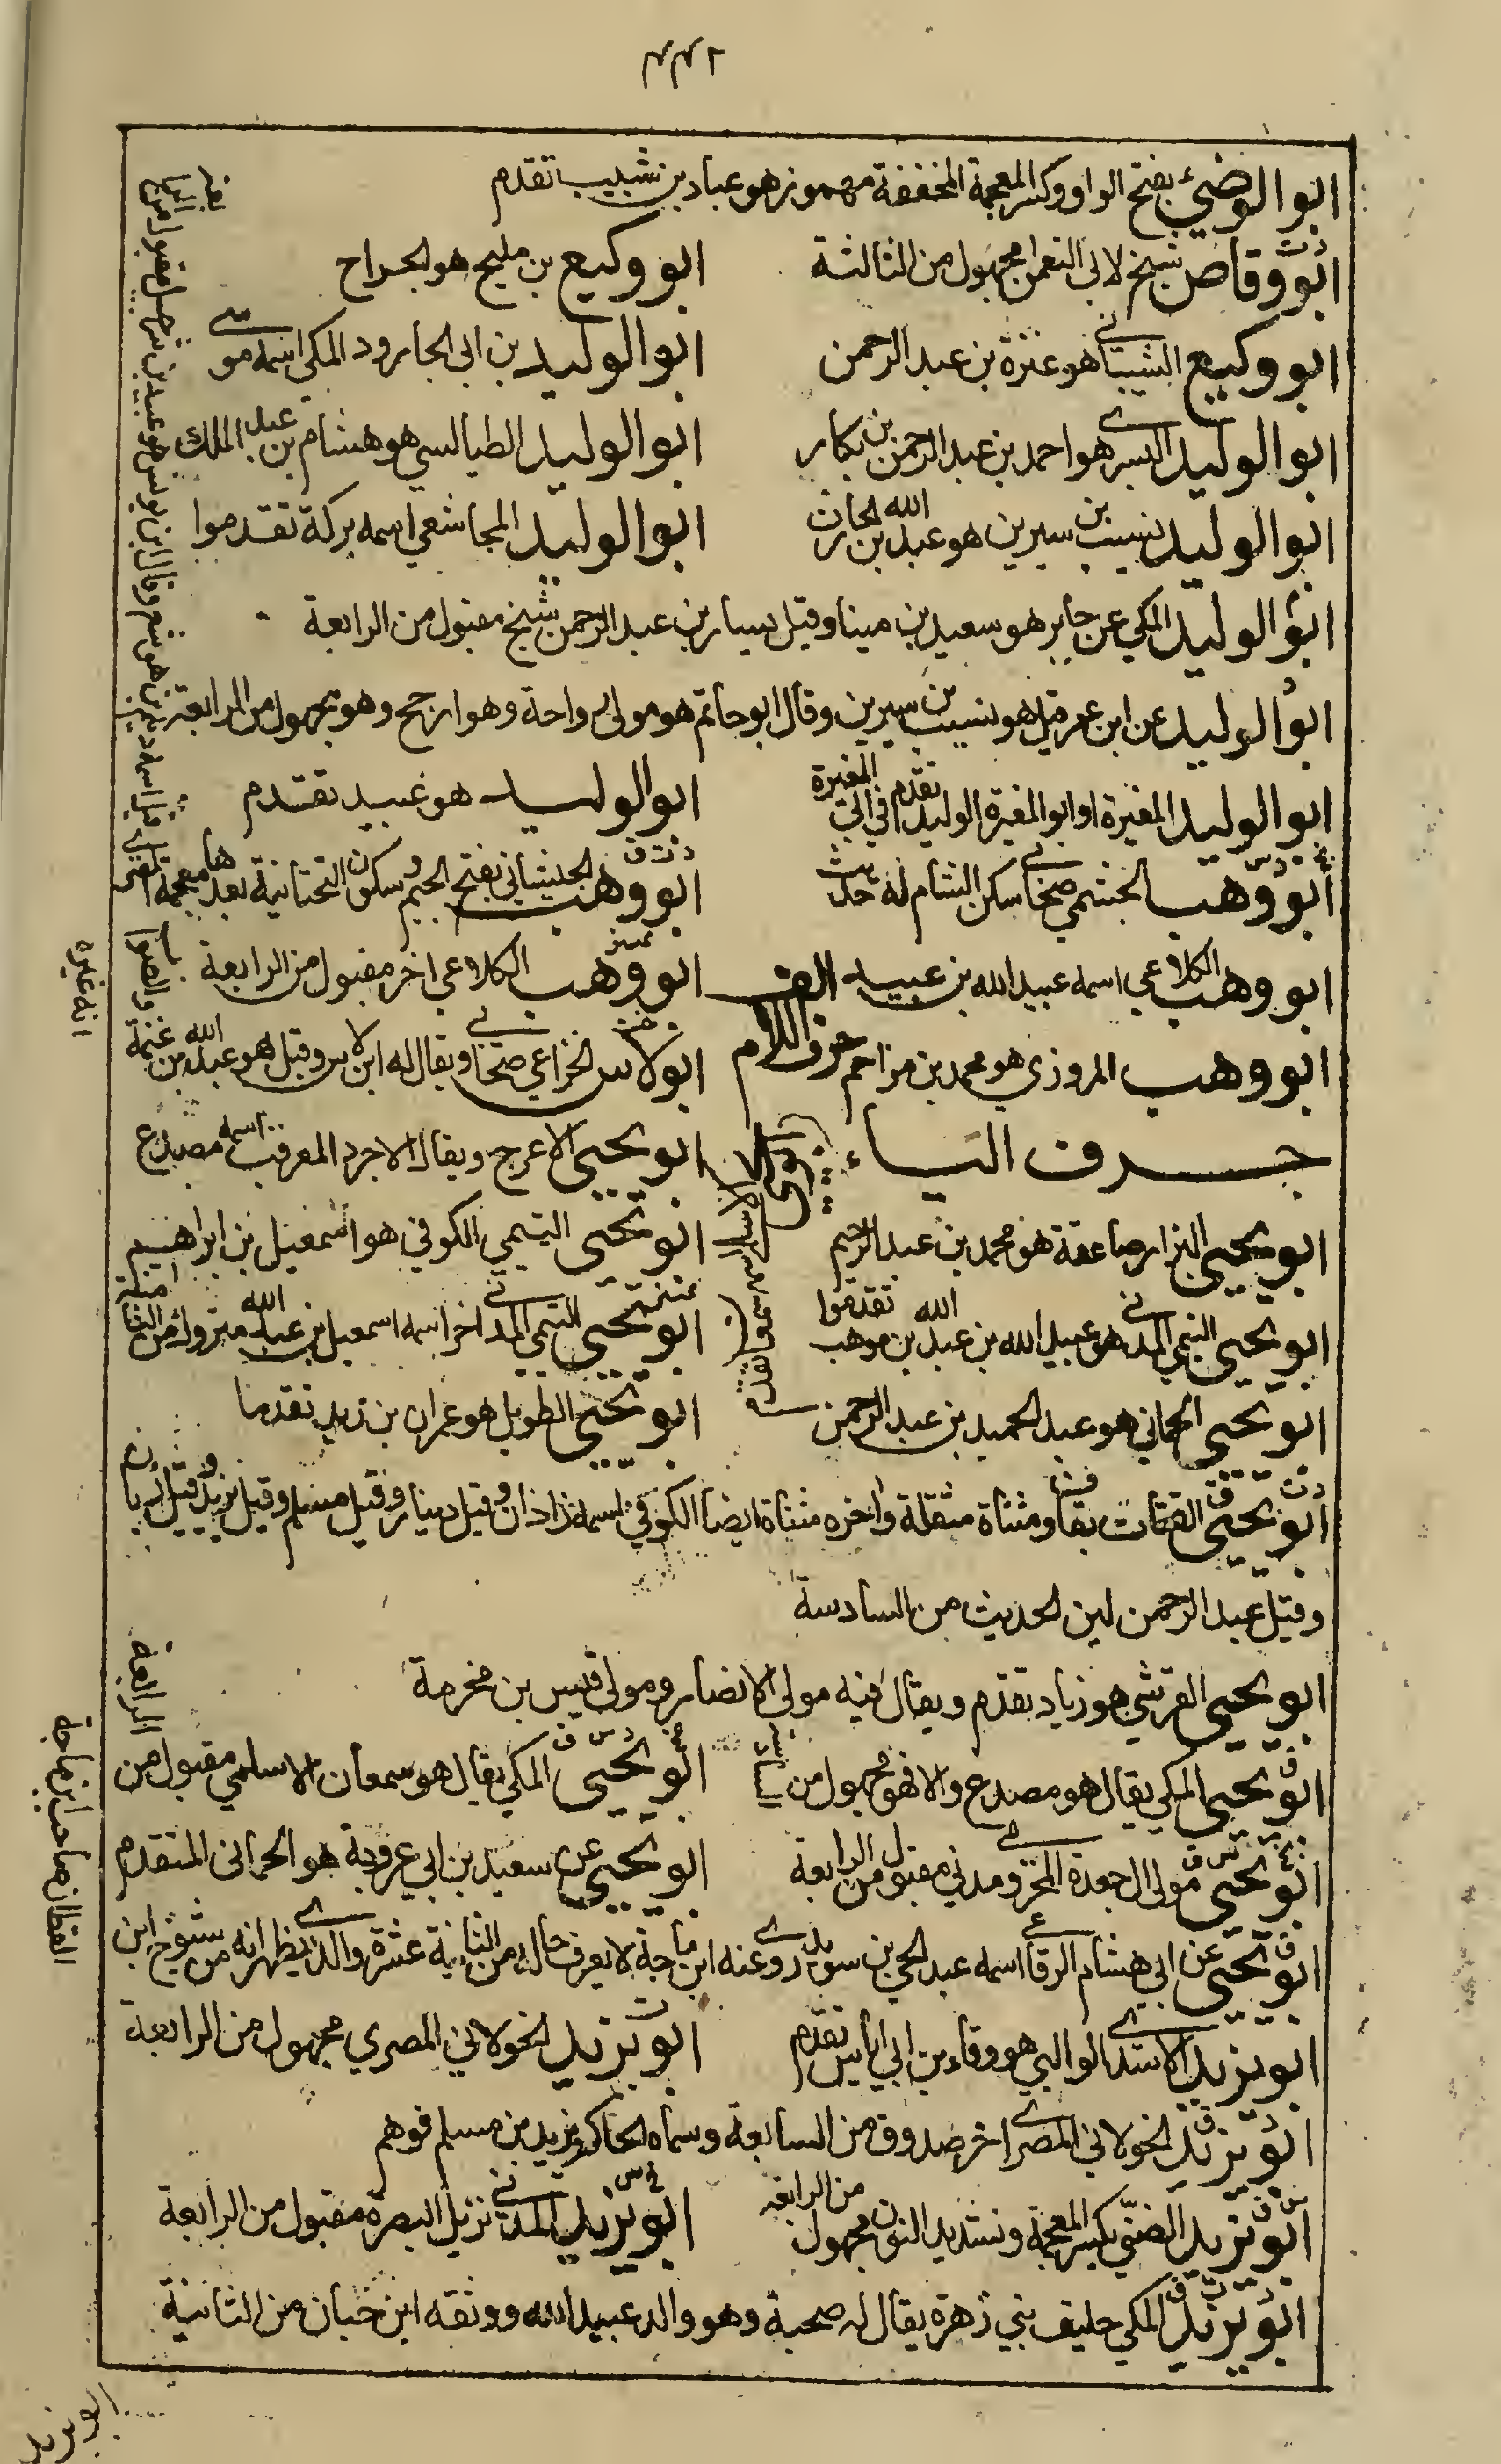 ٢٣٣
ابو الوضيء بفتح الواو وكسر المعجمة المخففة مهموز هو عباد بن نسيب تقدم
ابو وقاص شيخ لابي النعمان مجهول من الثالثة ابو وكيع بن مليح هو الجراح
ابو وكيع الشيباني هو عنترة بن عبد الرحمن ابو الوليد بن ابي الجارود المكي اسمه موسى
ابو الوليد البسري هو احمد بن عبد الرحمن بن بكار ابو الوليد الطيالسي هو هشام بن عبد الملك
ابو الوليد نسيب بن سيرين هو عبد الله بن الحارث ابو الوليد المجاشعي اسمه بركة تقدموا
ابو الوليد المكي عن جابر هو سعيد بن مينا وقيل يسار بن عبد الرحمن شيخ مقبول من الرابعة
ابو الوليد عن ابن عمر قيل هو نسيب بن سيرين وقال ابو حاتم هو مولى رواحة وهو ارجح وهو مجهول من الرابعة
ابو الوليد المغيرة او ابو المغيرة الوليد تقدم في ابي المغيرة ابو الوليد هو عبيد تقدم
ابو وهب الجشمي صحابي سكن الشام له حديث ابو وهب الجيشاني بفتح الجيم وسكون التحتانية بعدها معجمة
ابو وهب الكلاعي اسمه عبيد الله بن عبيد ابو وهب الكلاعي اخر مقبول من الرابعة
ابو وهب المروزي هو محمد بن مزاحم حرف اللام الف ابو لاس الخزاعي صحابي ويقال له ابن لاس وقيل هو عبد الله بن غنمة
حرف الياء ابو يحيى الاعرج ويقال الاجرد المعرقب اسمه مصدع
ابو يحيى البزار صاعقة هو محمد بن عبد الرحيم ابو يحيى التيمي الكوفي هو اسمعيل بن ابراهيم
ابو يحيى التيمي المدني هو عبيد الله بن عبد الله بن موهب تقدموا ابو يحيى التيمي المدني اخر اسمه اسمعيل بن عبد الله متروك من الثامنة
ابو يحيى الحماني هو عبد الحميد بن عبد الرحمن ابو يحيى الطويل هو عمران بن زيد تقدما
ابو يحيى القتات بقاف ومثناة مثقلة واخره مثناة ايضا الكوفي اسمه زاذان وقيل دينار وقيل مسلم وقيل يزيد وقيل زبان
وقيل عبد الرحمن لين الحديث من السادسة
ابو يحيى القرشي هو زياد تقدم ويقال فيه مولى الانصار ومولى قيس بن مخرمة
ابو يحيى المكي يقال هو مصدع والا فهو مجهول من السادسة ابو يحيى المكي يقال هو سمعان الاسلمي مقبول من الرابعة
ابو يحيى مولى ال جعدة المخزومي مدني مقبول من الرابعة ابو يحيى عن سعيد بن ابي عروبة هو الحراني المتقدم
ابو يحيى عن ابي هشام الرفاعي اسمه عبد الحي بن سويد روى عنه ابن ماجة لا يعرف حاله من الثانية عشرة والذي يظهر انه من شيوخ ابن
القطان صاحب ابن ماجة
ابو يزيد الاسدي الوالبي هو وقاء بن ابي اياس تقدم ابو يزيد الخولاني المصري مجهول من الرابعة
ابو يزيد الخولاني المصري اخر صدوق من السابعة وسماه الحاكم يزيد بن مسلم فوهم
ابو يزيد الضني بكسر المعجمة وتشديد النون مجهول من الرابعة ابو يزيد المدني نزيل البصرة مقبول من الرابعة
ابو يزيد المكي حليف بني زهرة يقال له صحبة وهو والد عبيد الله ووثقه ابن حبان من الثانية
ابو يزيد